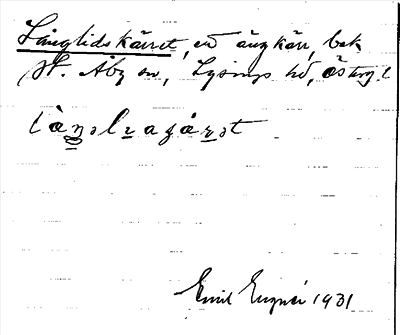 Långlidskärret, en ängkärr, bek
St. Åby sn, Lysings hd, Östergl.
Emil Eugnér 1931